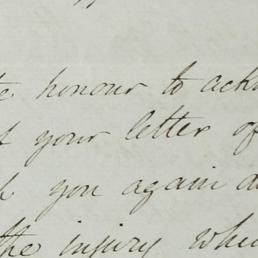 honour to ack
your letter of
you again
the injury